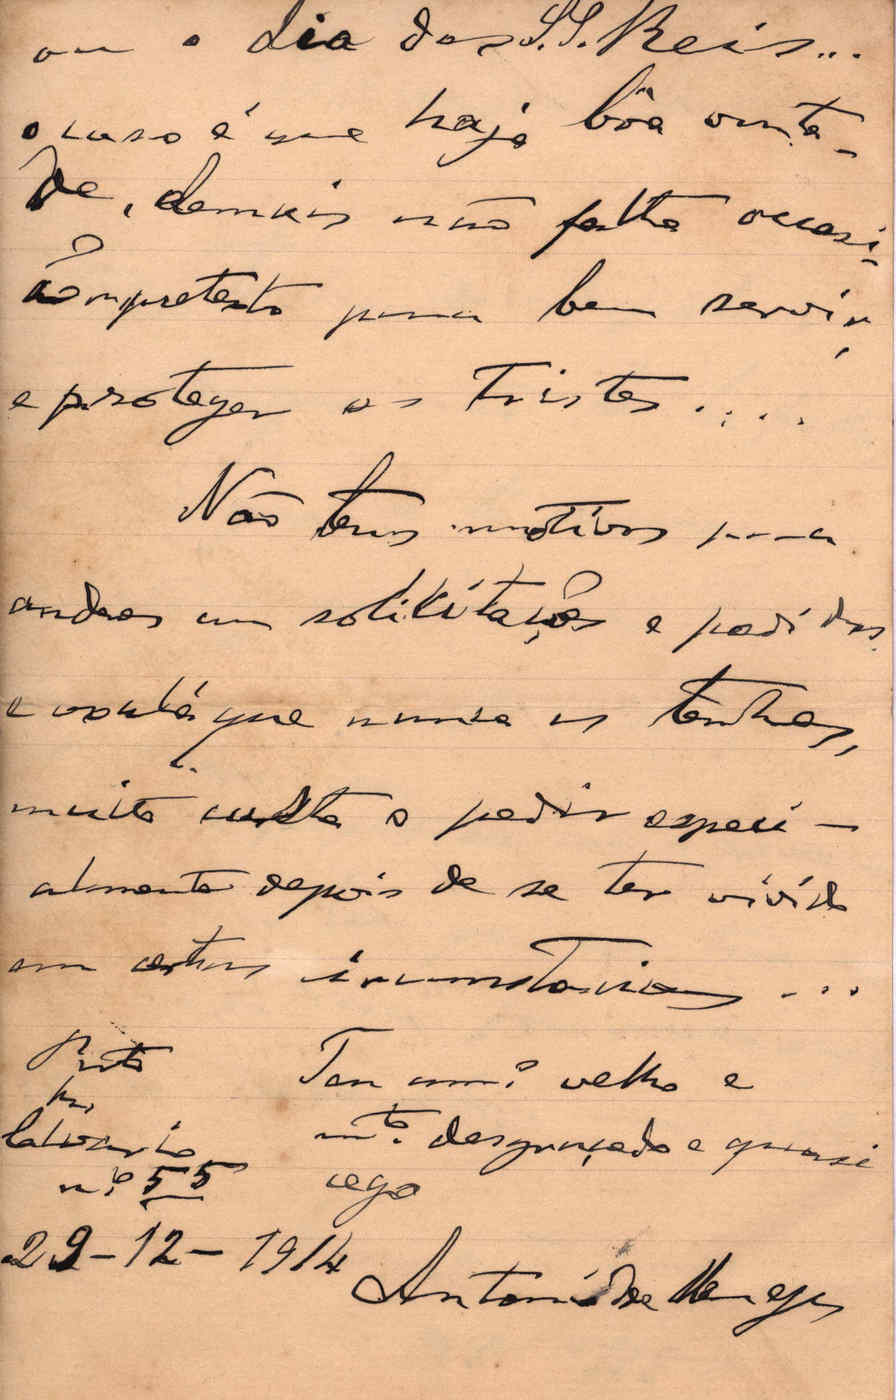 ou o dia dos S.S. Reis...
o caso é que haja bôa vonta-
de, demais não falta occasi-
ão pretexto para bem servir,
e proteger os Tristes....
Não tens motivos para
andares em solicitações e pedidos
e oxalá que nunca os tenhas,
muito custa o pedir especi-
almente depois de se ter vivido
em certas circumstancias...
Porto
Calvario
nº 55
29-12-1914
Teu amº velho e
mtº. desgraçado e quasi
cego
Antonio de